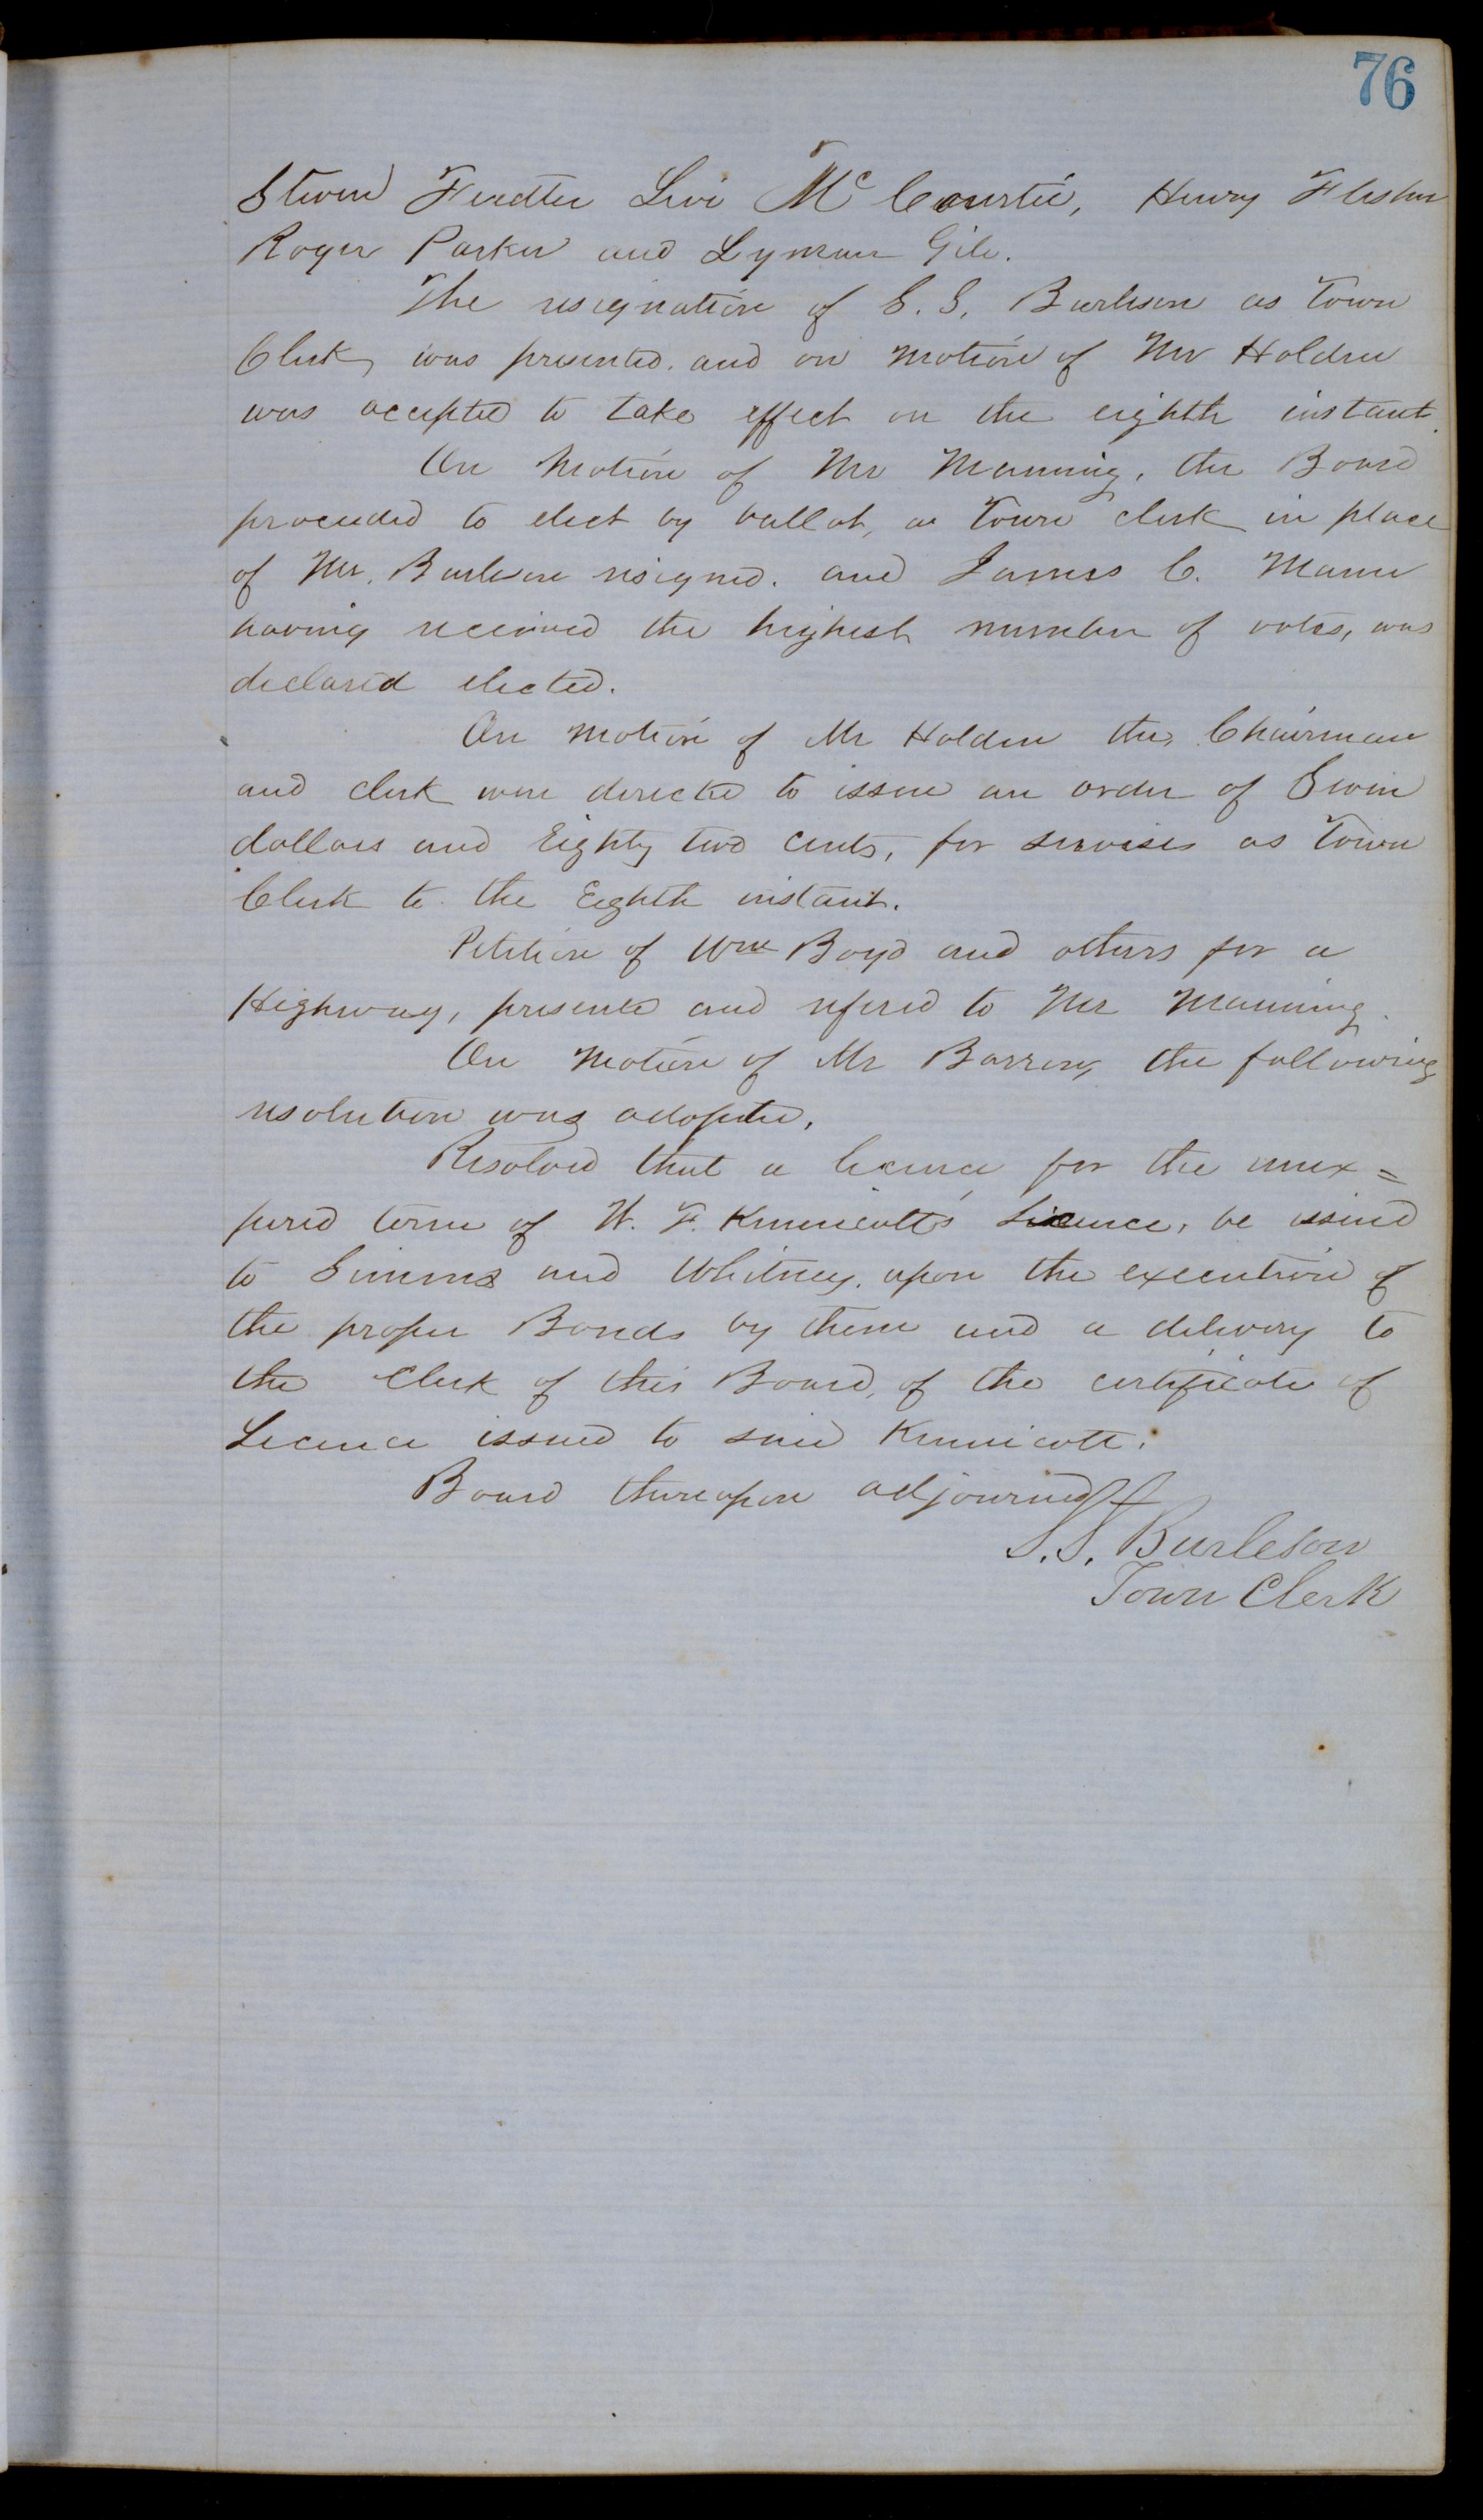 76
Steven Levi McCourtie, Henry Flesher
Roger Parker and Lyman Gile.
The resignation of S. S. Burleson as Town
Clerk, was presented. and on motion of Mr Holden
was accepted to take effect on the eighth instant.
On Motion of Mr Manning, the Board
proceeded to elect by ballot, a Town clerk in place
of Mr. Burleson resigned. and James C. Mann
having received the highest number of votes, was
declared elected.
On motion of Mr Holden the, Chairman
and clerk were directed to issue an order of Seven
dollars and Eighty two cents, for servises as Town
Clerk to the Eighth instant.
Petition of Wm Boyd and others for a
Highway, presented and refered to Mr Manning.
On Motion of Mr Barron, the following
resolution was adopted,
Resolved that a licence for the unex=
pired term of W. F. Kinnicutt's Licence, be issued
to Simms and Whitney, upon the execution of
the proper Bonds by them and a delivery to
the Clerk of this Board, of the certificate of
Licence issued to said Kinnicott.
Board thereupon adjourned
S. S. Burleson
Town Clerk